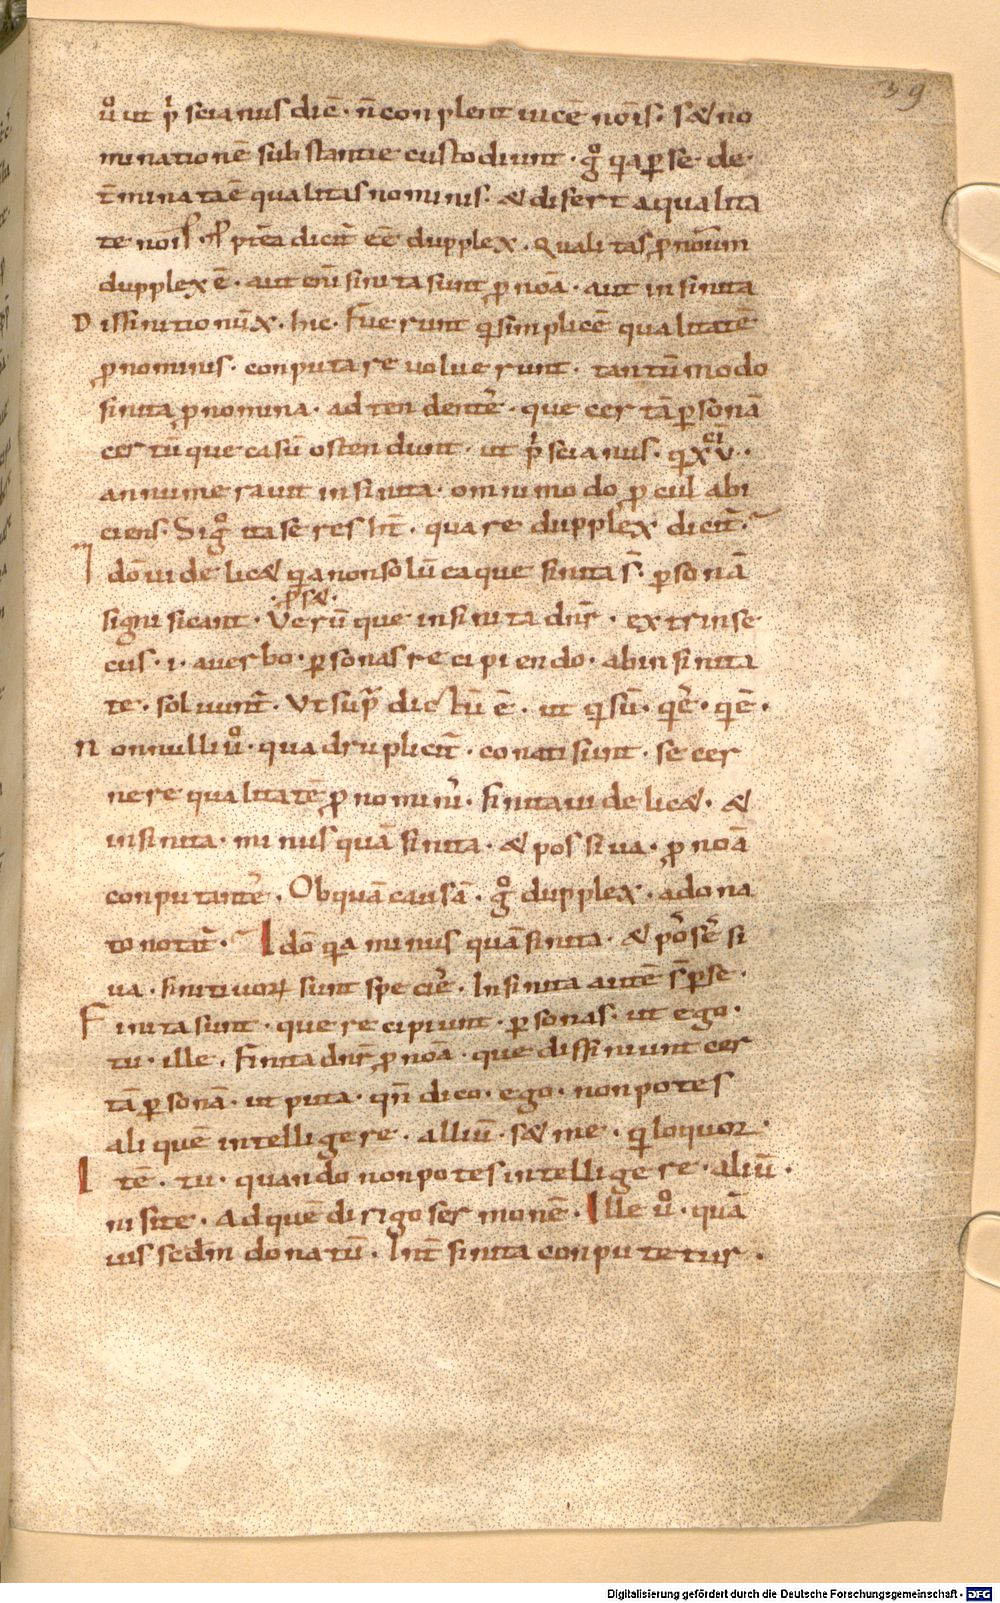 39
uº ut p̄scianus dic̄· n̄ conplent uicē nōis· s& no
minationē substantie custodiunt· gº qa ꝑ se de
t̄minata ē qualitas nominis· & differt a qualita
te nōis· ptēa dicit̄ eē dupplex· Qualitas ꝓnoūm
dupplex ē· aut enī finita sunt ꝓnoā· aut infinita
Diffinitionū x̄· hic· Fuerunt qi simplicē qualitatē
ꝓnominis· conputare uoluerunt· tantūmodo
finita ꝓnomina· adtendentē· que certā ꝑsonā
certūque casū ostendunt· ut p̄scianus· qi xv̄·
annumerauit infinita· omnimodo ꝓcul abi
ciens· Si gº ita se res ht̄· quare dupplex dicit̄·
Idō uidelic& qa non solū ea que finita s̄· ꝑsonā
·ꝑ se·
significant· Verū que infinita dn̄r· extrinse
cus· i· auerbo· ꝑsonas recipiendo· ab infinita
te· soluunt̄· Ut sup̄ dictū ē· ut qi sū· qi ē̄s· qi ē·
Nonnulli uº· quadruplicit̄· conati sunt· secer
nere qualitatē ꝓnominū· finita uidelic&· &
infinita· minus quā finita· & possiua· ꝓnoā
conputantē· Obquā causā· gº dupplex· adona
to notat̄· Idō qa minus quā finita· & possessi
ua· finitiuoꝝ sunt speciē· Infinita autē s̄ ꝑ se·
Finita sunt· que recipiunt· ꝑsonas· ut ego·
tu· ille· Finita dn̄r ꝓnoā· que diffiniunt cer
tā ꝑsonā· ut puta· qn̄ dico· ego· non potes
aliquē intelligere· alliū· s& me· qi loquor·
Itē· tu· quando non potes intelligere· aliū·
nisi te· Ad quē dirigo sermonē· Ille uº· quā
uis sedm̄ donatū· Int̄ finita conputetur·
Digitalisierung gefördert durch die Deutsche Forschungsgemeinschaft - DFG